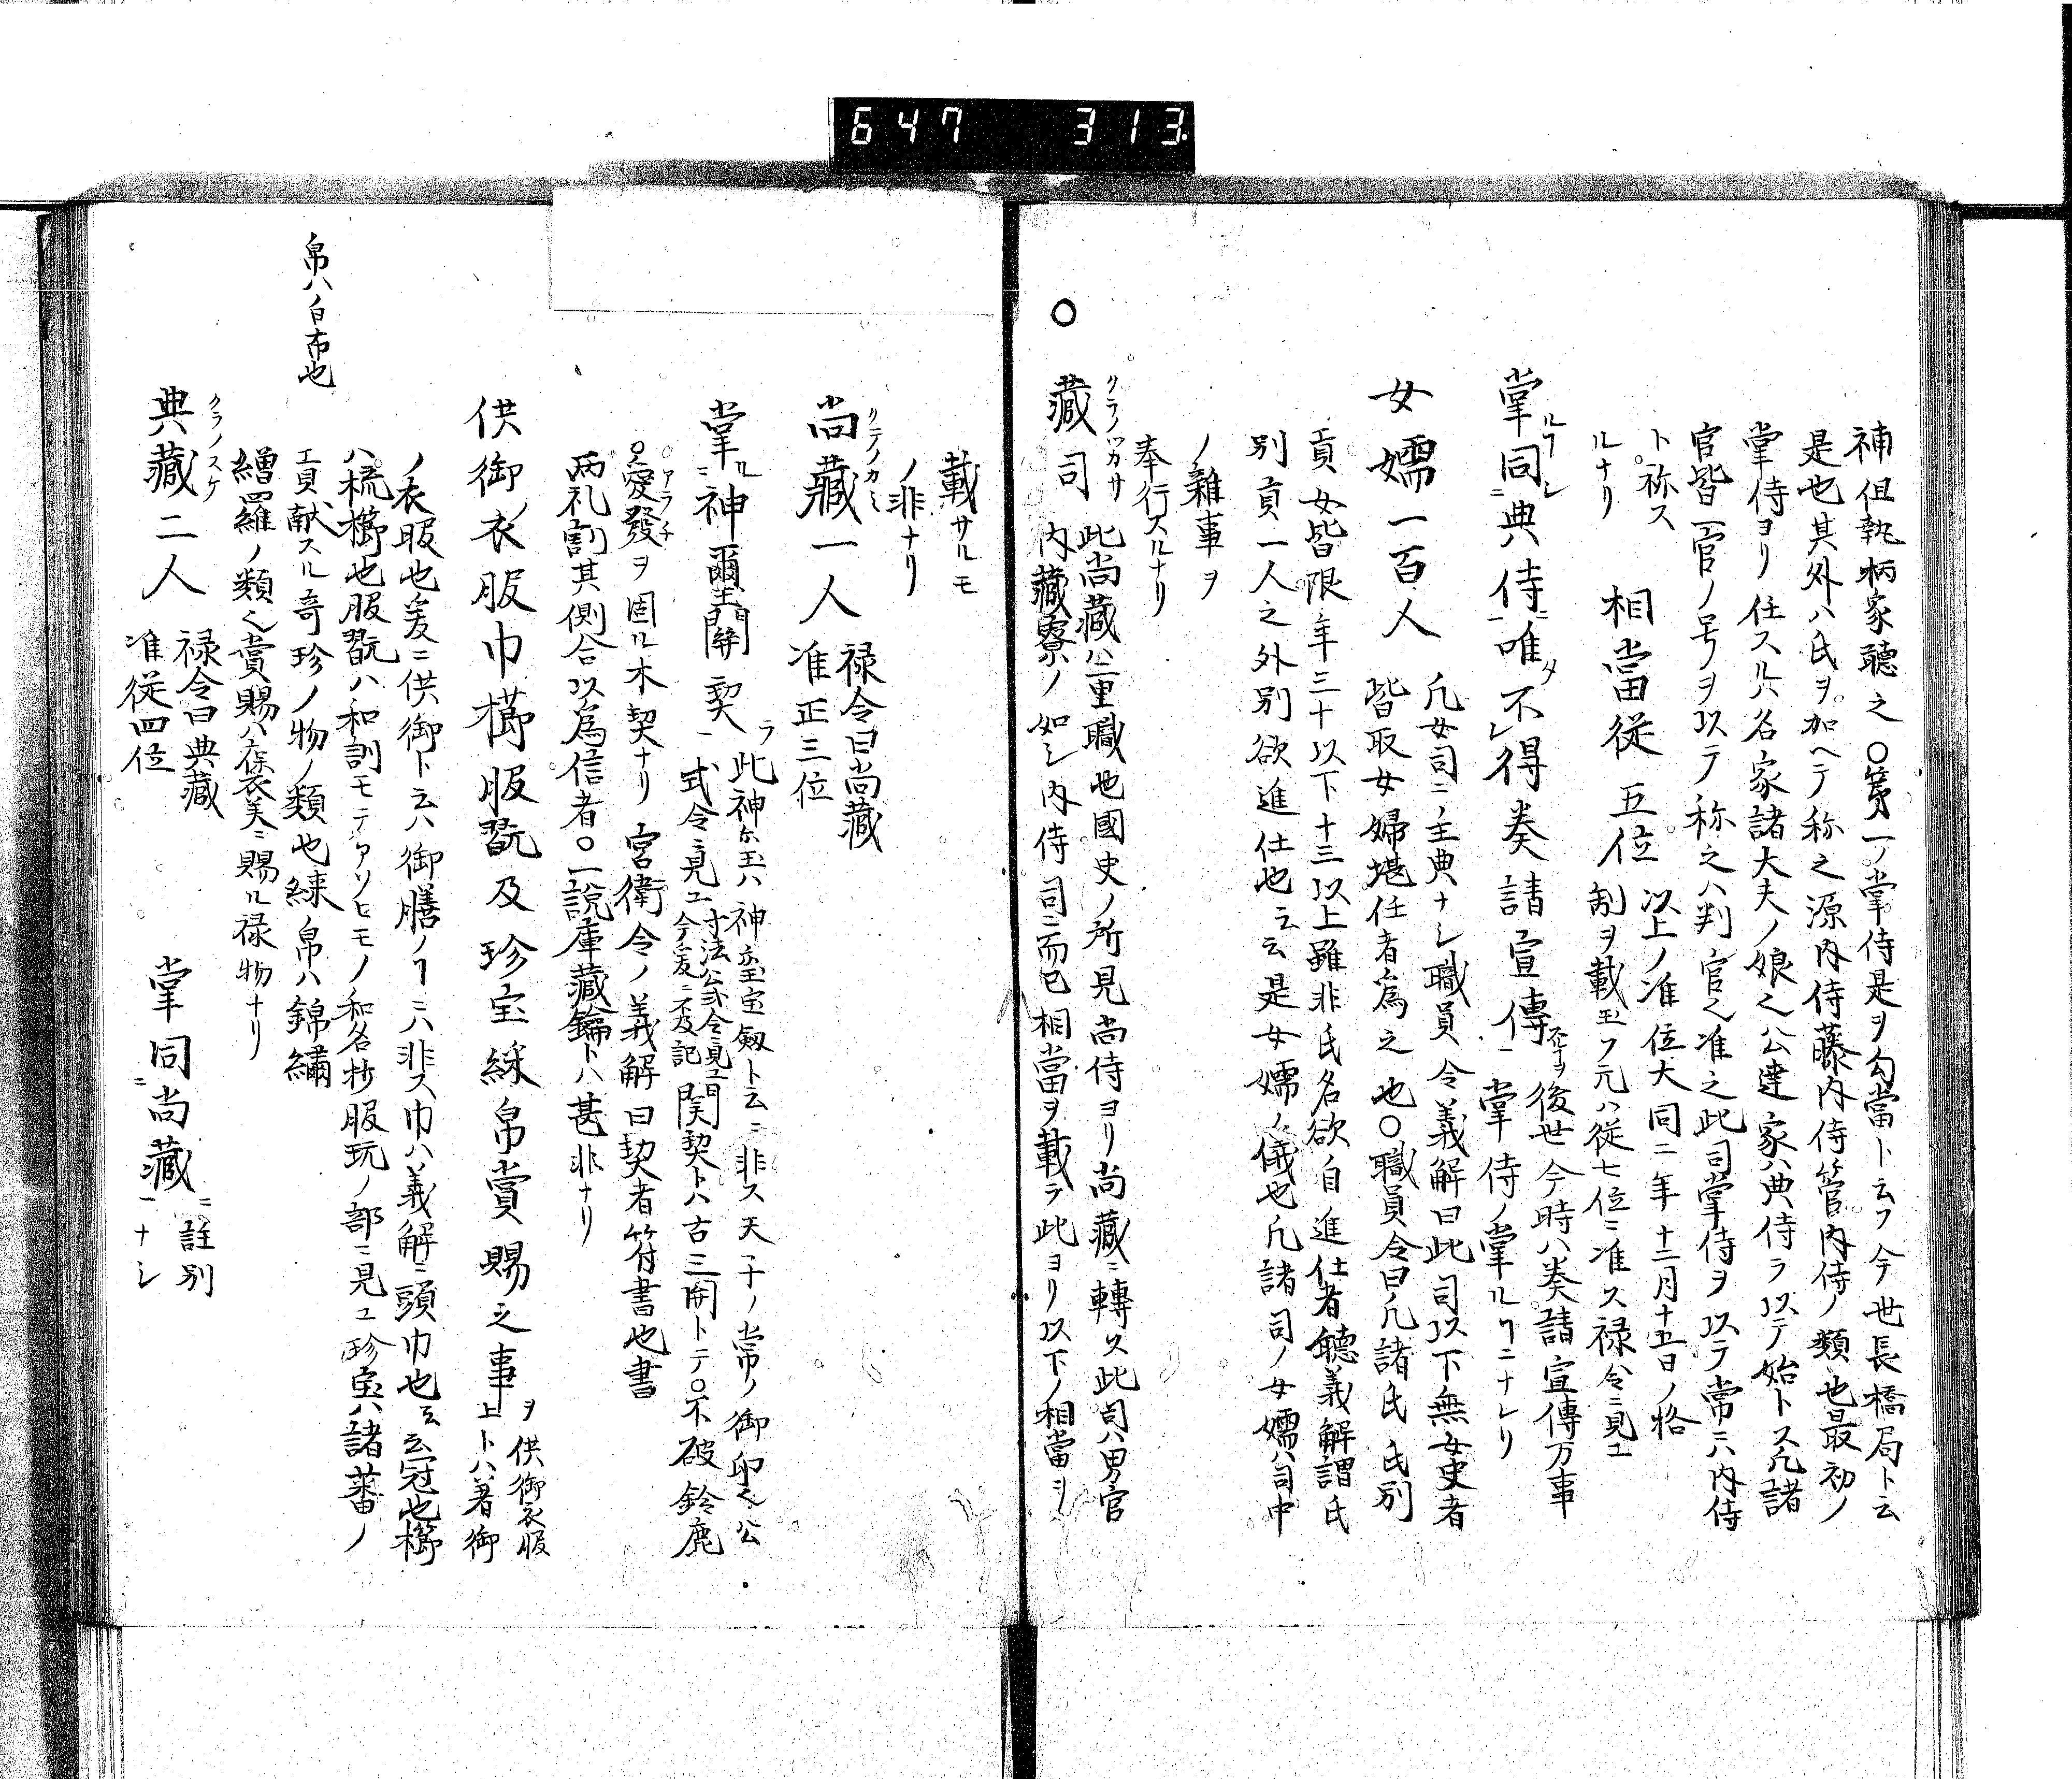 647 313
補但執柄家聴之○第一ノ掌侍是ヲ勾當ト云フ今世長橋局ト云
是也其外ハ氏ヲ加ヘテ称之源内侍藤内侍管内侍ノ類也最初ノ
掌侍ヨリ任スルハ名家諸大夫ノ娘也公達家ハ典侍ヲ以テ始トス凡諸
官皆一官ノ号ヲ以テ称之ハ判官也准之此司掌侍ヲ以テ常ニハ内侍
ト称ス
相當従五位
以上ノ准位大同二年十二月十五日ノ格
制ヲ載玉フ元ハ従七位ニ准ス禄令ニ見ユ
ルナリ
掌ルヿ同シ典侍ニ唯タ不得奏請宣傳スルヿヲ
後世今時ハ奏請宣傳万事
掌侍ノ掌ルヿニナレリ
女嬬一百人
凡女司ニ主典ナシ職員令義解曰此司以下無女史者
皆取女婦堪任者為之也○職員令曰凡諸氏氏別
貢女皆限年三十以下十三以上雖非氏名欲自進仕者聴義解謂氏
別貢一人之外別欲進仕也云云是女嬬ノ儀也凡諸司ノ女嬬ハ司中
ノ雑事ヲ
奉行スルナリ
○藏司
クラノツカサ
此尚藏ハ重職也國史ノ所見尚侍ヨリ尚藏ニ轉ス此司ハ男官
内藏寮ノ如シ内侍司ニ而已相當ヲ載テ此ヨリ以下ノ相當ヲ
載サルモ
ノ非ナリ
尚藏一人
クラノカミ
禄令曰尚藏
准正三位
掌ル神璽關契
ヲ此神璽ハ神璽宝劔ト云ニ非ス天子ノ常ノ御印也公
式令ニ見ユ寸法公式令ニ見ユ今爰ニ不及記関契トハ古三関トテ○不破鈴鹿
○愛發ヲ固ル木契ナリ宮衛令ノ義解曰契者符書也書
アラチ
両札割其側合以為信者○一説庫藏鑰トハ甚非ナリ
供御ノ衣服巾櫛服翫及珍宝綵帛賞賜之事
ヲ供御衣服
上トハ著御
ノ衣服也爰ニ供御ト云ハ御膳ノヿニハ非ス巾ハ義解ニ頭巾也云云冠也櫛
ハ梳櫛也服翫ハ和訓モテアソヒモノ和名抄服玩ノ部ニ見ユ珍宝ハ諸蕃ノ
貢献スル奇珍ノ物ノ類也綵帛ハ錦繍
繒羅ノ類也賞賜ハ褒美ニ賜ル禄物ナリ
帛ハ白布也
典藏二人
クラノスケ
禄令曰典藏
准従四位
掌同尚藏
ニ註別
ナシ